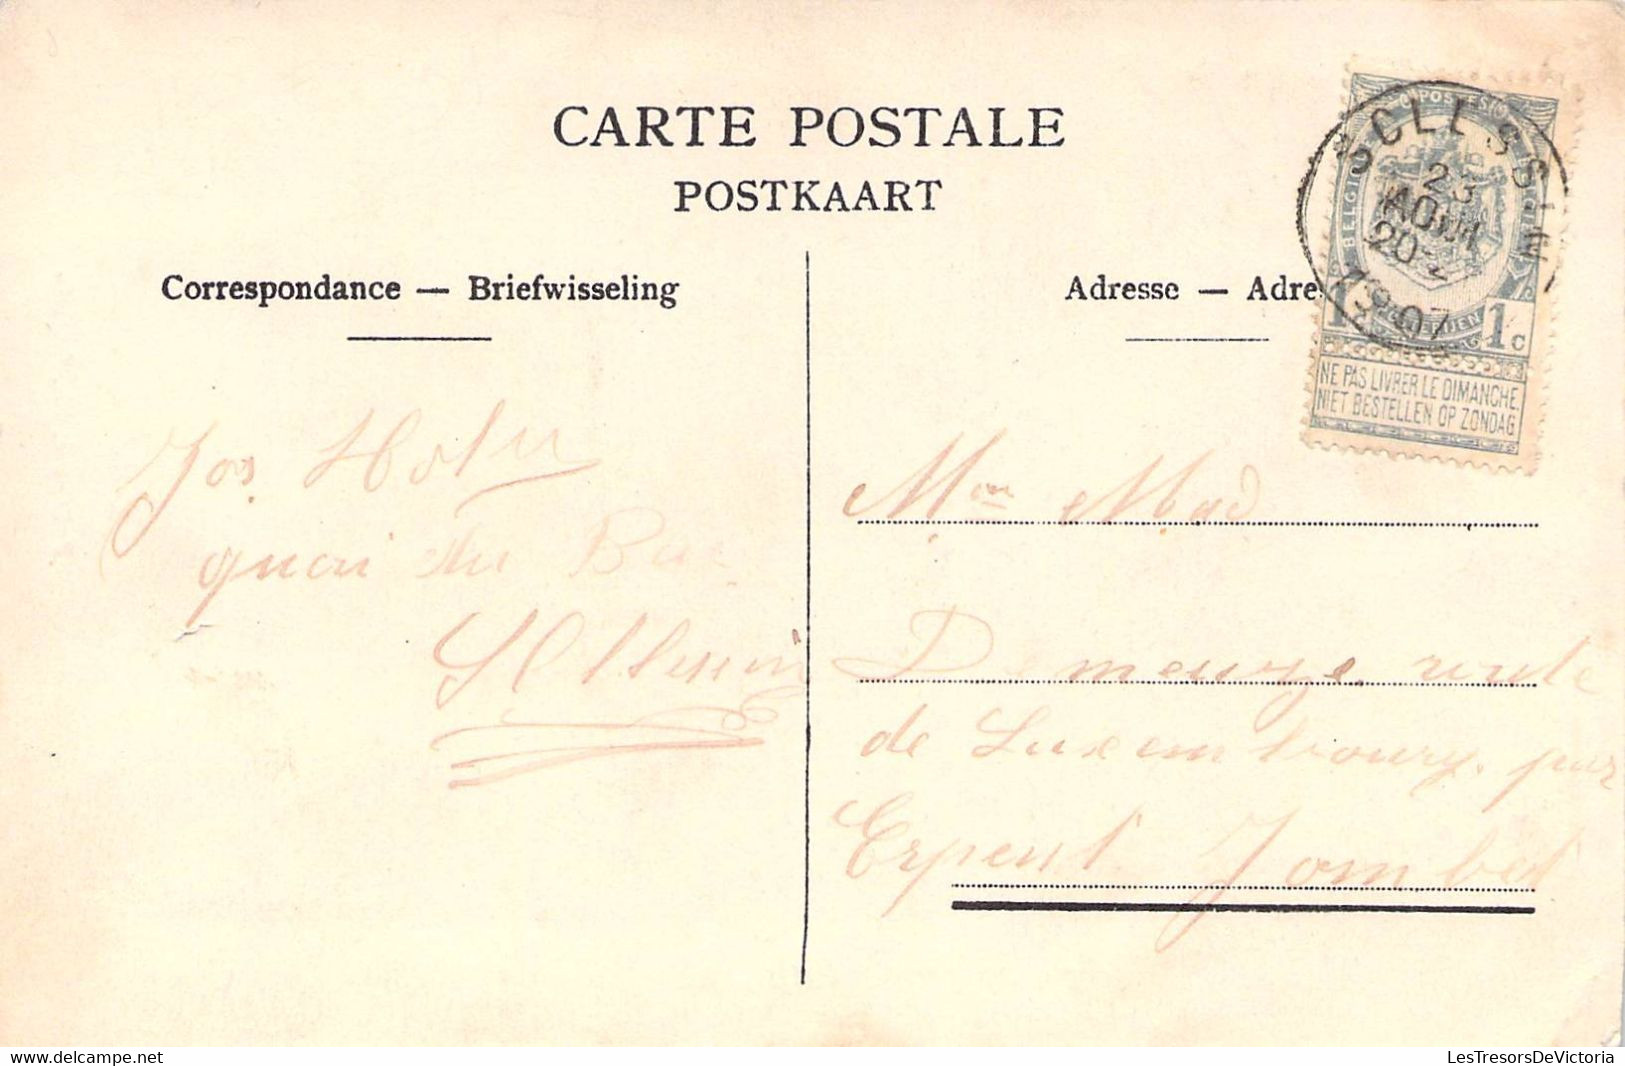 CARTE POSTALE
POSTKAART
Correspondance — Briefwisseling
Adresse — Adre
POSTES
BELGIQUE
1 1c
NE PAS LIVRER LE DIMANCHE
NIET BESTELLEN OP ZONDAG
SCLESSIN
23
AOUT
20-
1907
Jos
quai du
Sclessin
Mon Mad
Demeuze route
de Luxembourg. par
Erpent Jambes
delcampe.net
LesTresorsDeVictoria